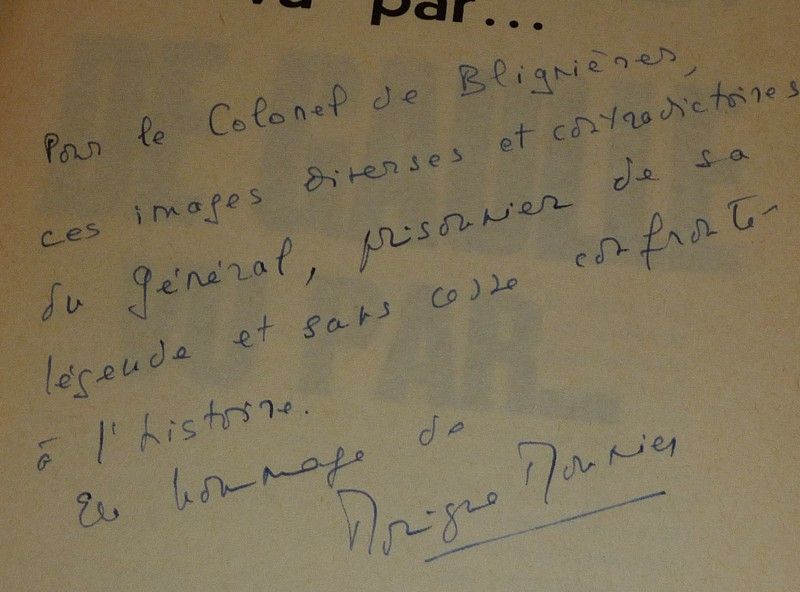 vu par...
Pour le Colonel de Blignières,
ces images diverses et contradictoires
du Général, prisonnier de sa
légende et sans cesse confronté
à l'histoire.
En hommage de
Monique Mounier